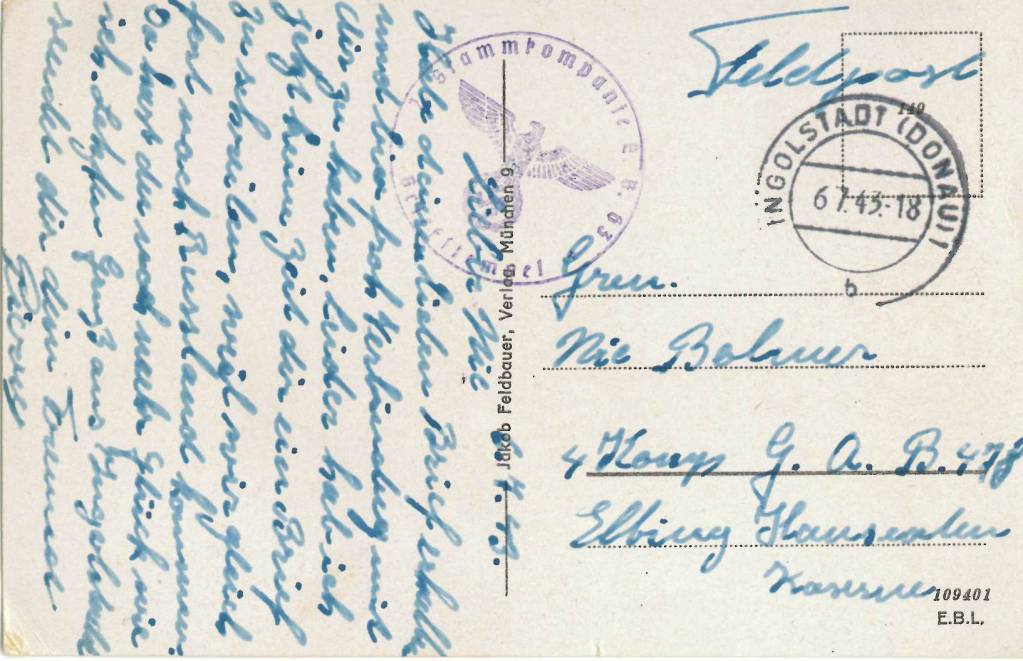 Feldpost
149
INGOLSTADT (DONAU)
6 7. 43.-18
b
Stammkompanie G. B. 63
Briefstempel
Gren.
Nic Bolmer
4 Komp G. A. B.
Elbing
Kaserne
109401
E.B.L.
Jakob Feldbauer, Verlag, München 9.
Lieber Nic 6.7.43.
Habe deinen lieben Brief erhalten
und bin froh Verbindung mit
dir zu haben. Leider hab ich
jetzt keine Zeit dir ein Brief
zu schreiben, weil wir gleich
fort nach Russland kommen
Da hast du noch mehr Glück wie
ich. Gruß aus Ingolstadt
sendet dir dein Freund